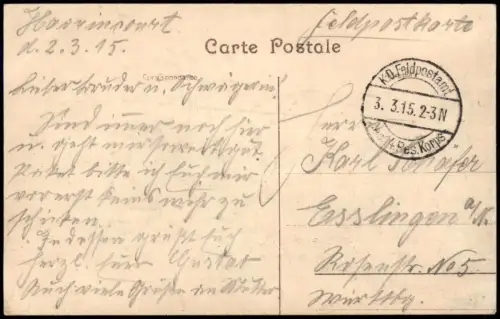 Havrincourt
d. 2.3.15.
Feldpostkarte
Carte Postale
Correspondance
K.D. Feldpostamt
3. 3.15. 2-3N
Res. Korps
Lieber Bruder u. Schwägerin!
Sind immer noch hier
u. geht mir soweit gut.
Paket bitte ich Euch mir
vorerst keins mehr zu
schicken.
Indessen grüßt Euch
herzl. Euer Gustav
Auch viele Grüße an Mutter
Herrn
Karl Schäfer
Esslingen a/N.
Rosenstr. No 5.
Württbg.